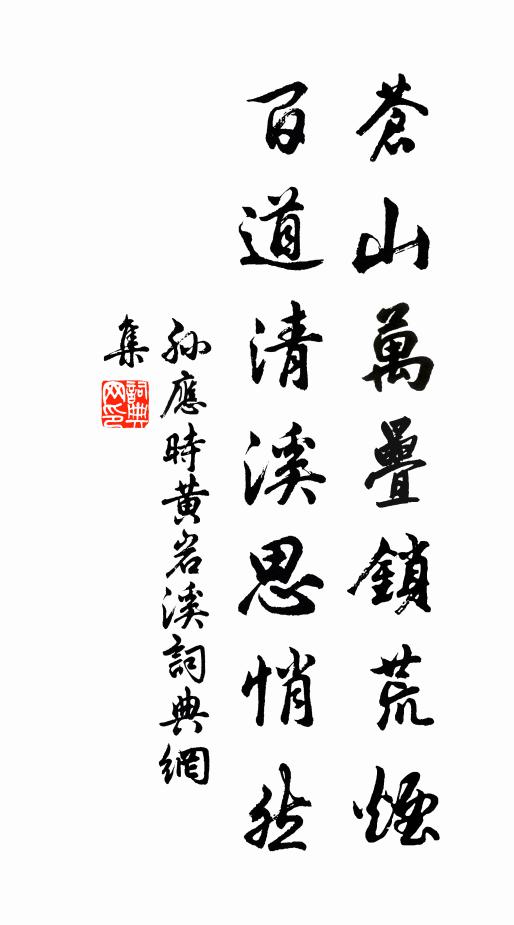 蒼山萬疊鎖荒煙
百道清溪思悄然
孫應時黄岩溪詞典網
集
詞典
网印